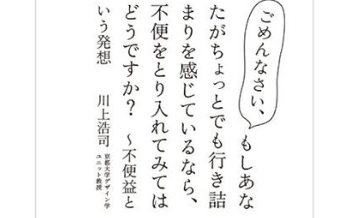 ごめんなさい、もしあな
たがちょっとでも行き詰
まりを感じているなら、
不便をとり入れてみては
どうですか? 〜不便益と
いう発想 川上浩司
京都大学デザイン学
ユニット教授